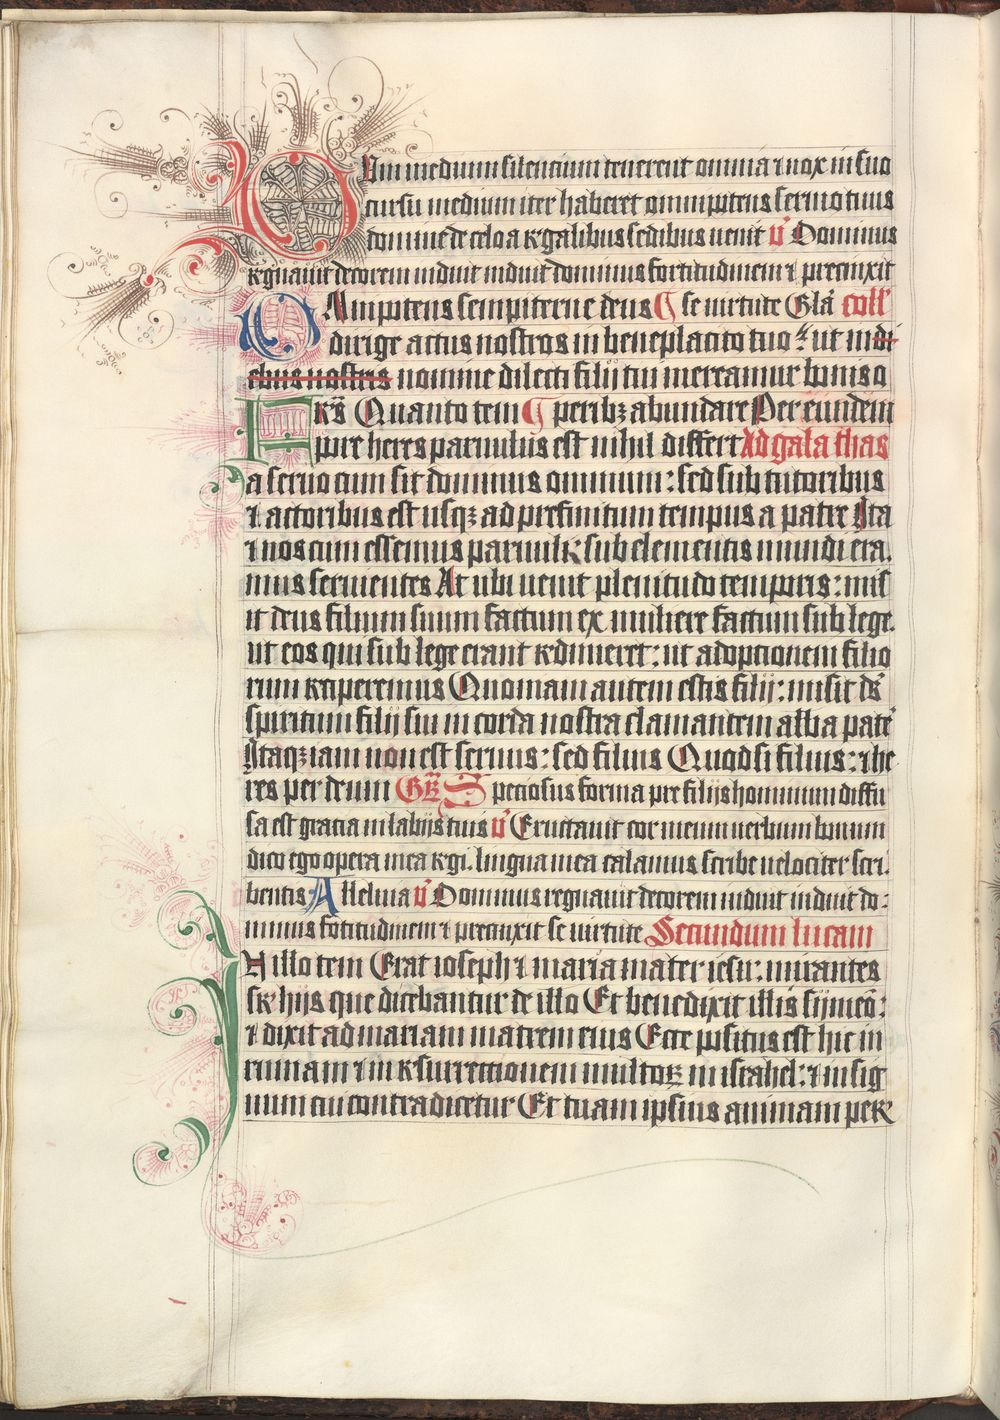 Dum medium silentium tenerent omnia ⁊ nox in suo
cursu medium iter haberet omnipotens sermo tuus
domine de celo a regalibus sedibus uenit v̄ Dominus
regnauit decorem induit induit dominus fortitudinem ⁊ precinxit
Omnipotens sempiterne deus se uirtute Glā coll
dirige actus nostros in beneplacito tuo ut in di
ebus nostris nomine dilecti filij tui mereamur bonis o
Fr̄s Quanto tem peribꝫ abundare Per eundem
pore heres paruulus est nihil differt Ad galathas
a seruo cum sit dominus omnium: sed sub tutoribus
⁊ actoribus est usqꝫ ad prefinitum tempus a patre Ita
⁊ nos cum essemus paruuli: sub elementis mundi era
mus seruientes At ubi uenit plenitudo temporis: mis
it deus filium suum factum ex muliere factum sub lege
ut eos qui sub lege erant redimeret: ut adoptionem filio
rum reciperemus Quoniam autem estis filij: misit ds̄
spiritum filij sui in corda nostra clamantem abba pater
Itaqꝫ iam non est seruus: sed filius Quod si filius: ⁊ he
res per deum Gr̄ Speciosus forma pre filijs hominum diffu
sa est gracia in labijs tuis v̄ Eructauit cor meum uerbum bonum
dico ego opera mea regi. lingua mea calamus scribe uelociter scri
bentis Alleluia v̄ Dominus regnauit decorem induit induit do:
minus fotitudinem ⁊ precinxit se uirtute Secundum lucam
In illo tem Erat ioseph ⁊ maria mater iesu: mirantes
sr hijs que dicebantur de illo Et benedixit illis sijmeō:
⁊ dixit ad mariam matrem eius Ecce positus est hic in
ruinam ⁊ in resurrectionem multoꝝ in israhel: ⁊ in sig
num cui contradicetur Et tuam ipsius animam per